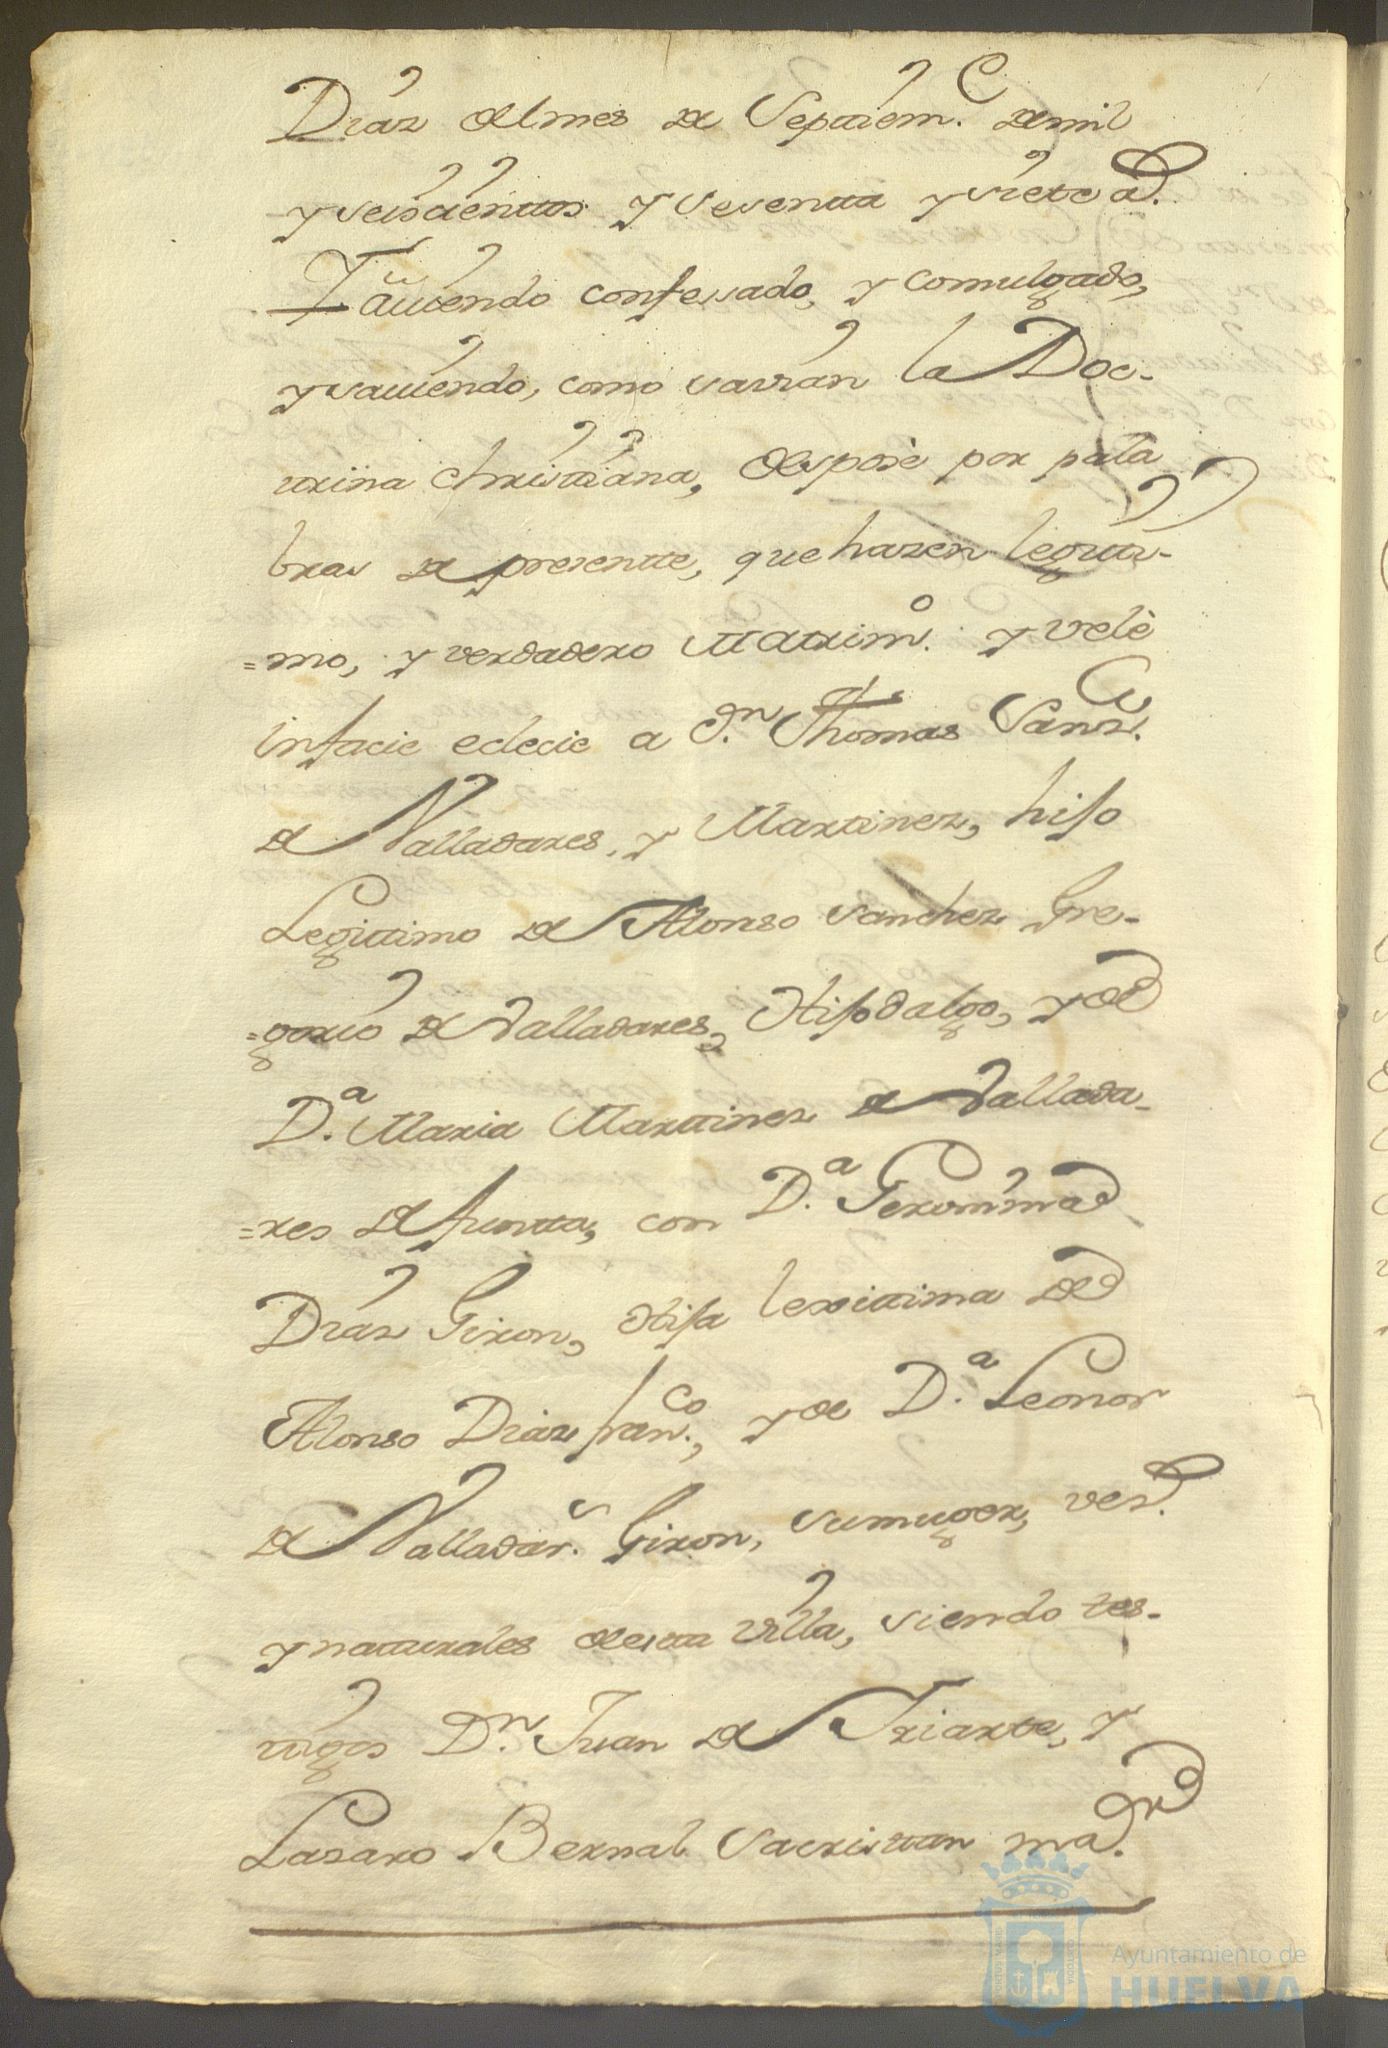 Dias del mes de Septiem.e de mil
y seiscienttos y sesentta y siete a.s
Haviendo confessado, y comulgado,
y saviendo, como savian la Doc-
ttrina christtiana, desposè por pala
bras de presentte, que hazen legitti-
=mo, y verdadero Mattrim.o y velè
infacie eclecie a D.n Thomas Sanz.
de Valladares, y Marttinez, hijo
Legittimo de Alonso Sanchez Gre-
=gorio de Valladares, Hijodalgo, y de
D.a Maria Marttinez de Vallada-
=res difuntta, con D.a Geronima
Dias Giron, Hija lexittima de
Alonso Diaz fran.co, y de D.a Leonor
de Valladar.s Giron, su muger, vez.s
y natturales destta Villa, siendo tes-
tigos D.n Juan de Yriarte, y
Lazaro Bernal Sacristtan ma.or
Ayuntamiento de
HUELVA